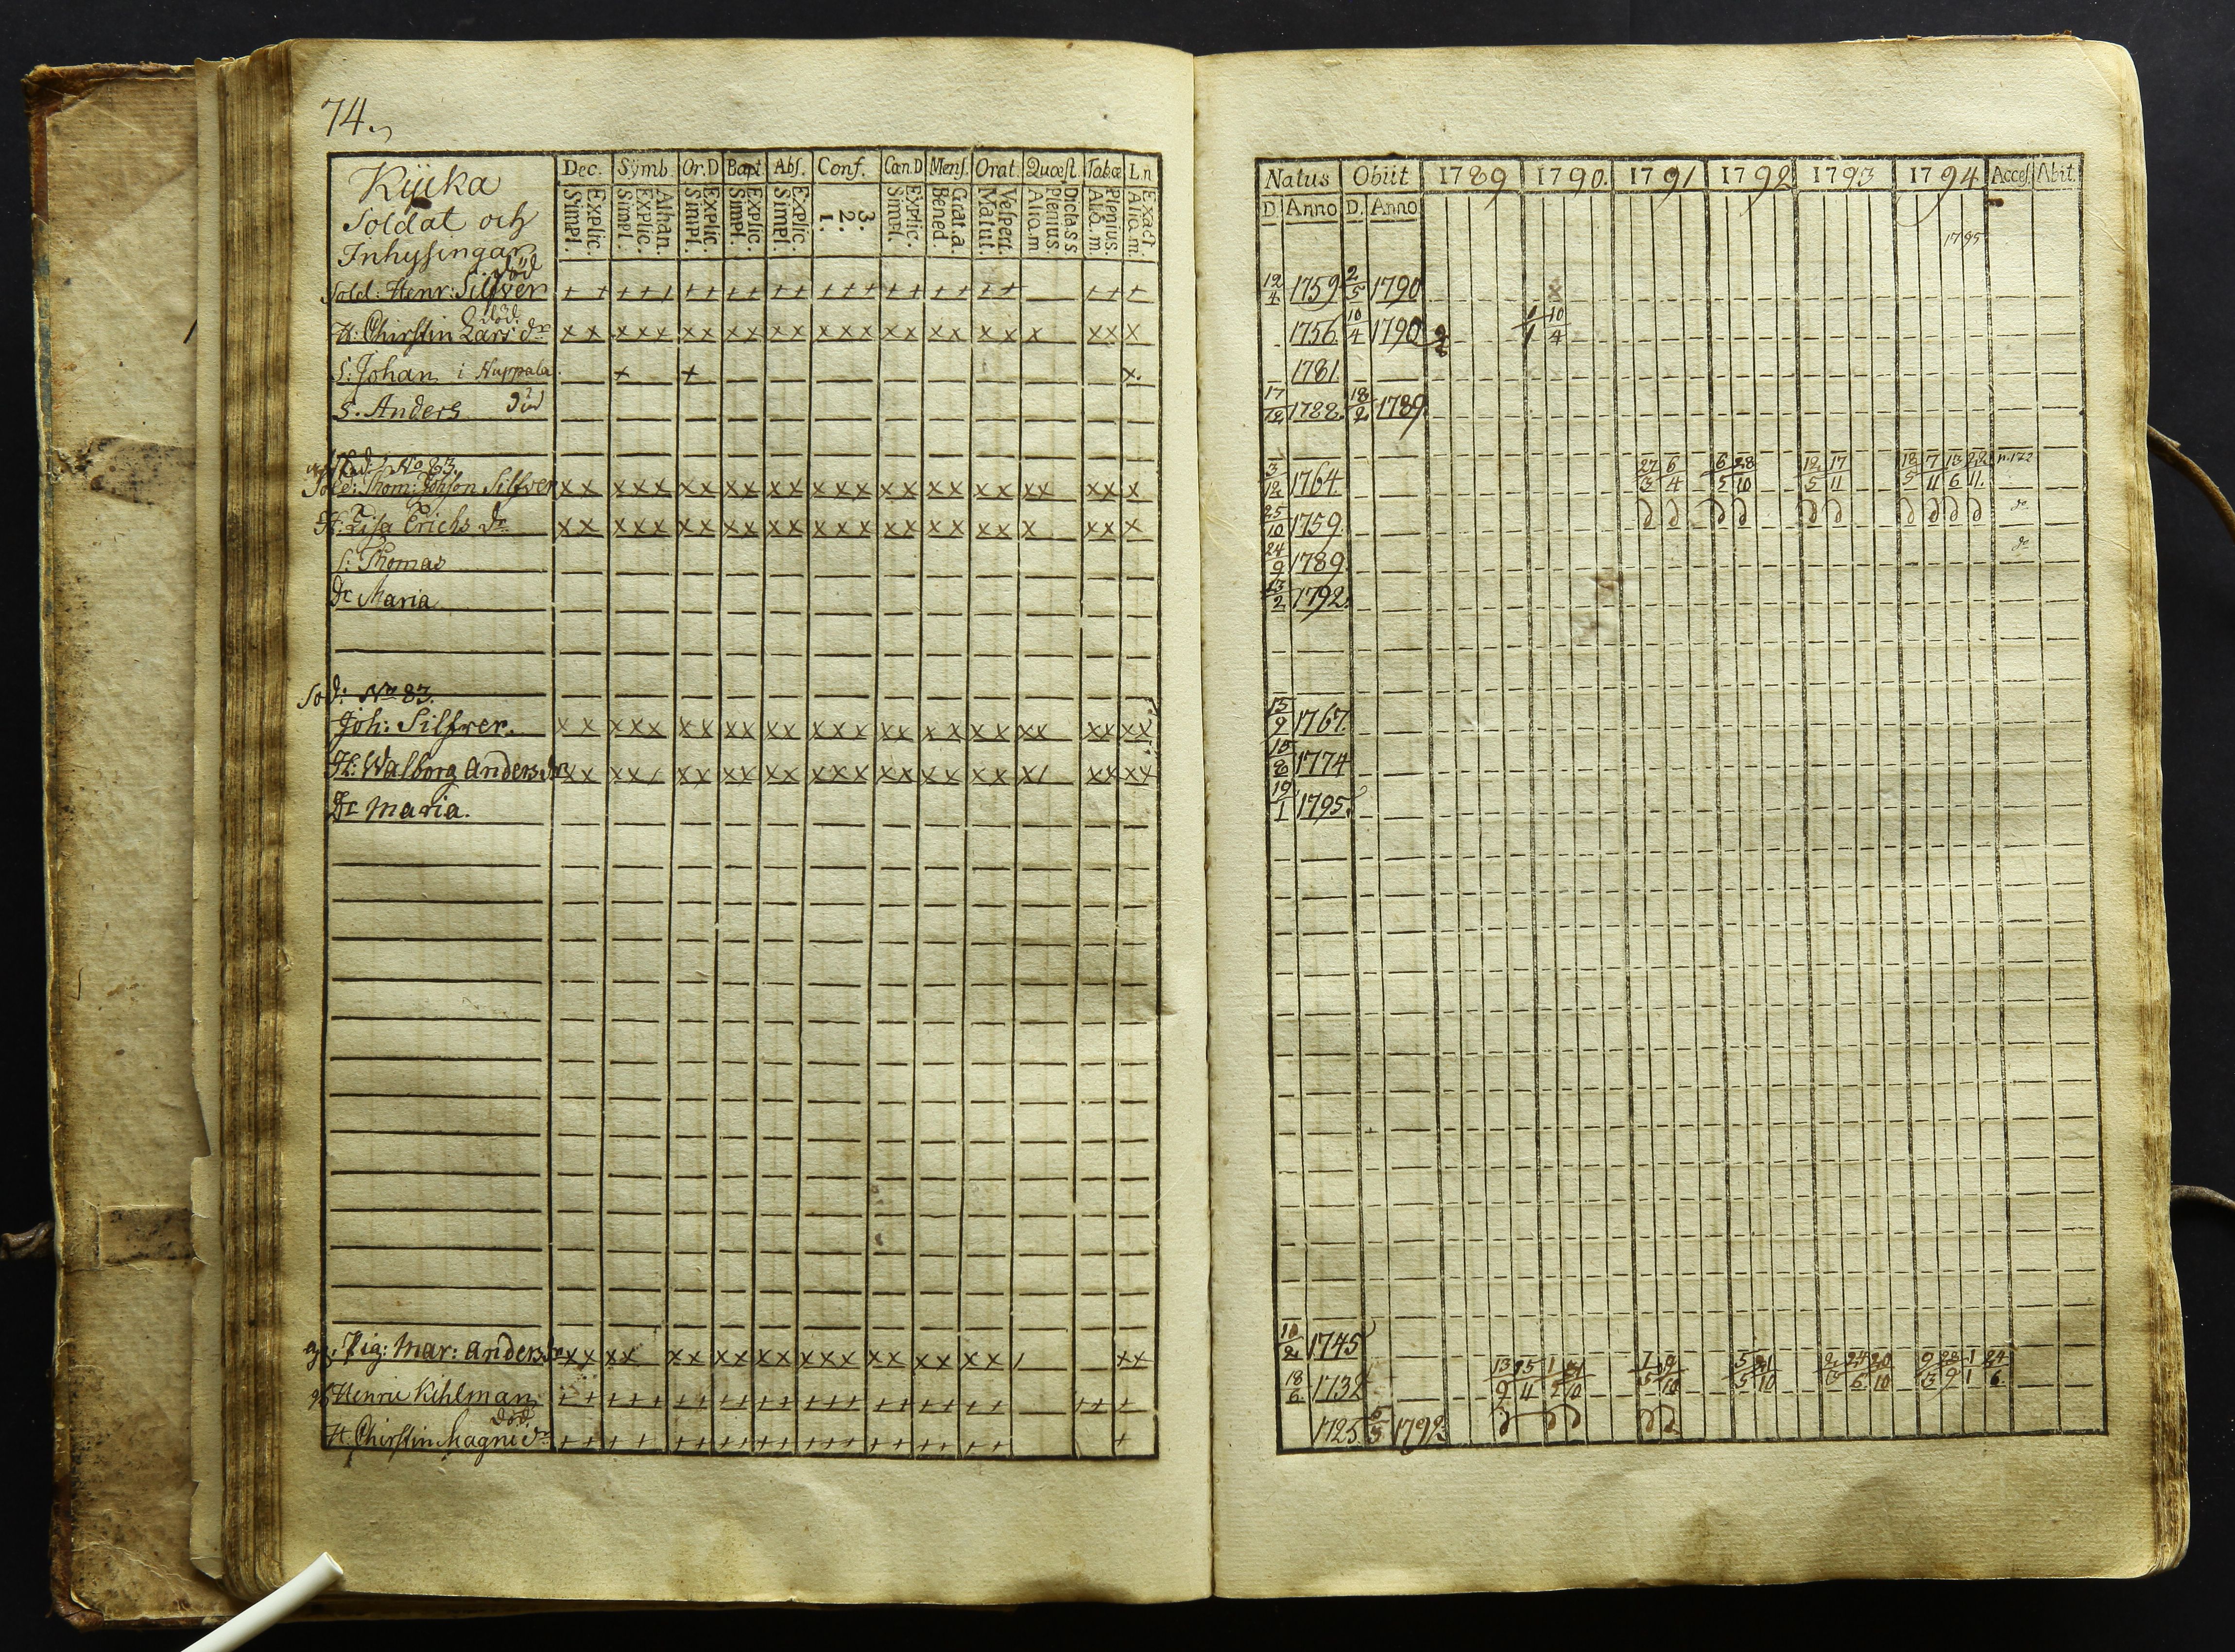 74.
Kÿcka
Soldat och
Inhysingar
Dec. Sÿmb. Or.D Bapt. Abs. Conf. Can.D Mens. Orat. Quœst. Tab.œ L.n
Simpl. Explic. Simpl. Explic. Athan. Simpl. Explic. Simpl. Explic. Simpl. Explic. 1. 2. 3. Simpl. Explic. Bened. Grat.a. Matut. Vespert. Aliq.m Plenius. Dicta S.S. Aliq.m Plenius. Aliq.m Exact.
död
Sold: Henr: Silfver
död.
H: Chirstin Lars dr
S: Johan i Nuppala
S. Anders död
Sold: No 83.
Sold: Thom: Johson Silfver
H: Lisa Erichs dr
S: Thomas
Dr Maria
Sod: No 83.
Joh: Silfver.
H: Walborg Anders dr
Dr Maria.
Pig: Mar: Anders dr
Henric Kihlman
död.
H Chirstin Magni dr
Natus Obiit 1789 1790. 1791 1792 1793 1794 Acces. Abit.
D. Anno D. Anno
1795
12/4 1759 2/5 1790
1756 10/4 1790 1/1 10/4
1781.
17/12 1788. 18/2 1789.
3/12 1764. 27/3 6/4 6/5 28/10 12/5 17/11 18/5 7/11 13/6 22/11 n. 172
25/10 1759. do
24/9 1789. do
13/2 1792.
15/9 1767.
18/8 1774
19/1 1795.
10/2 1745
18/6 1732 13/9 25/4 1/2 5/5 21/10 9/3 28/9 1/1 24/6
1725. 5/5 1792